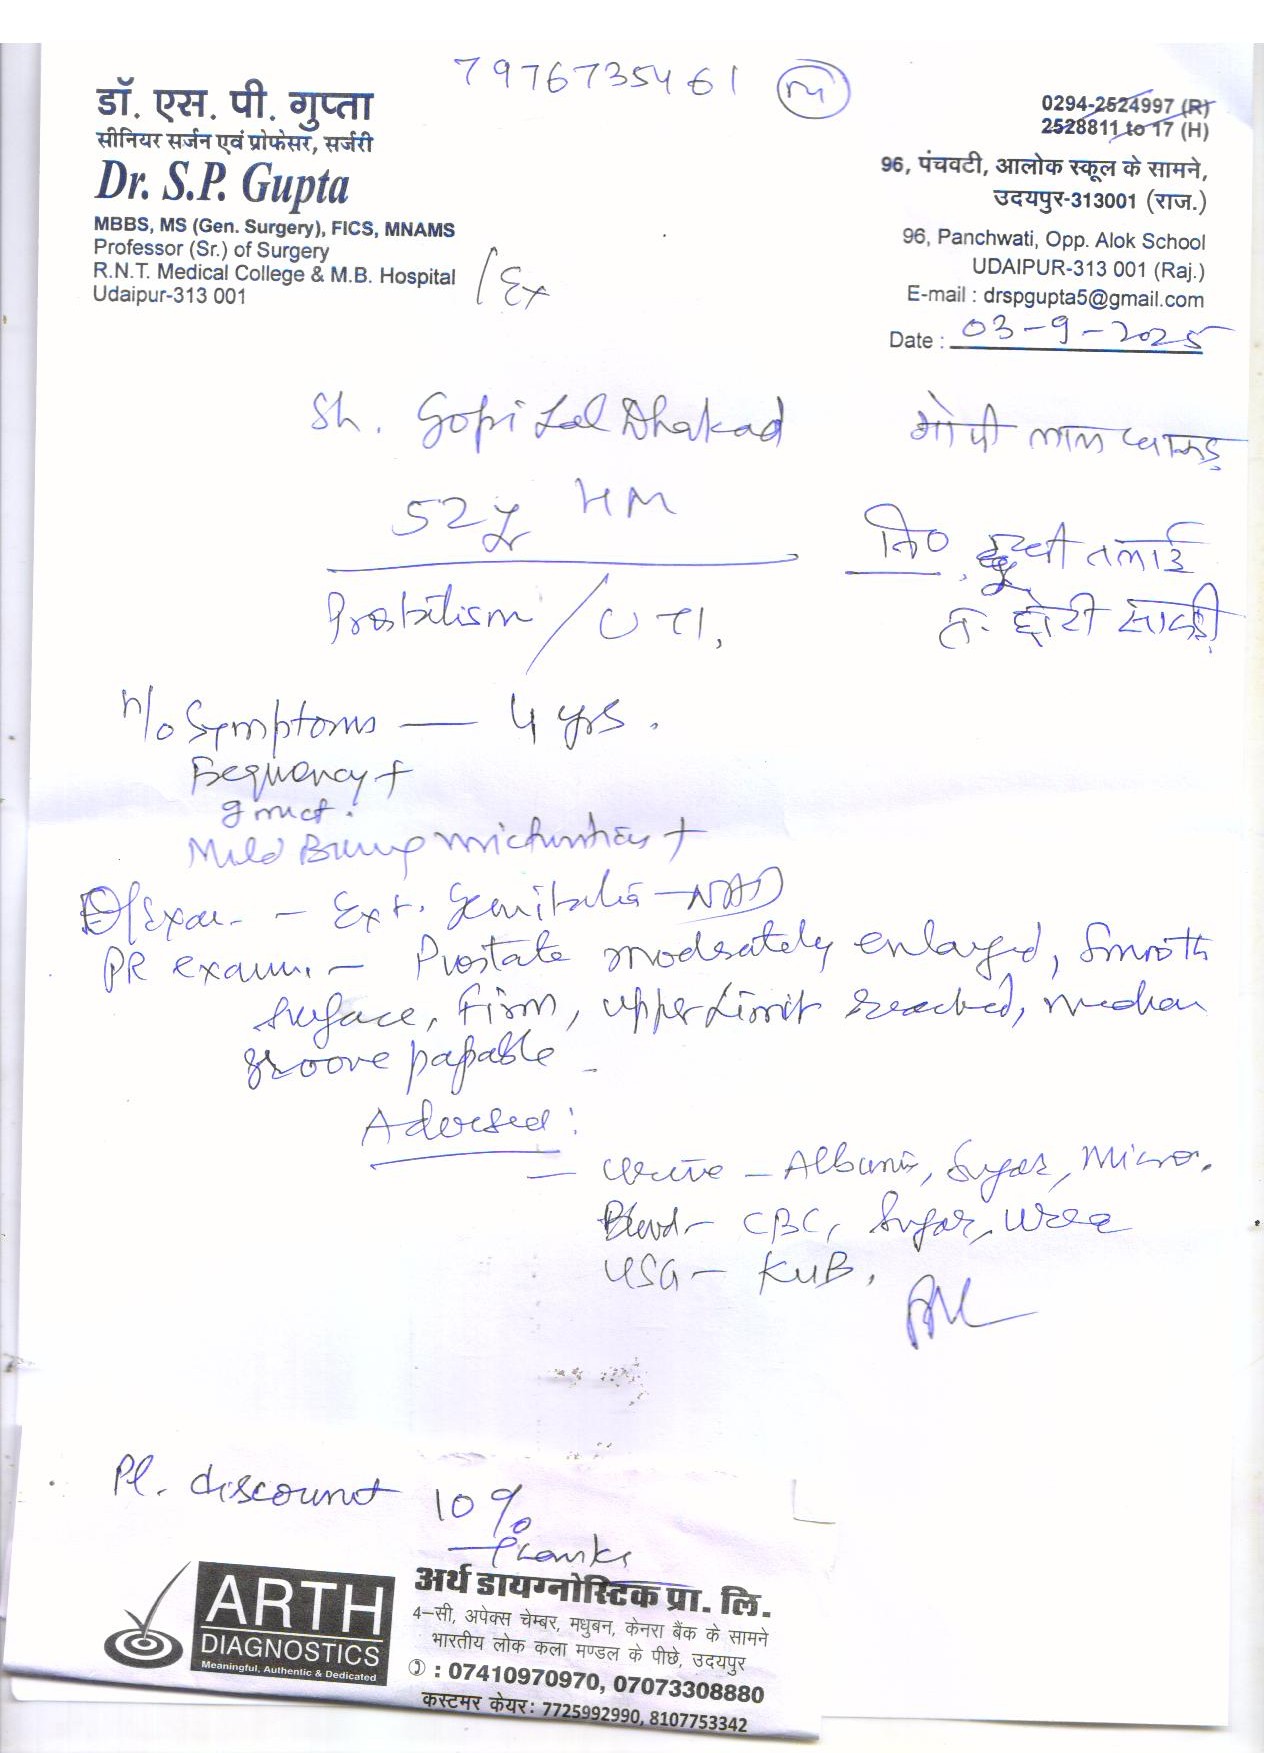 7976735461 M
डॉ. एस. पी. गुप्ता
सीनियर सर्जन एवं प्रोफेसर, सर्जरी
Dr. S.P. Gupta
MBBS, MS (Gen. Surgery), FICS, MNAMS
Professor (Sr.) of Surgery
R.N.T. Medical College & M.B. Hospital
Udaipur-313 001
/Ex
0294-2524997 (R)
2528811 to 17 (H)
96, पंचवटी, आलोक स्कूल के सामने,
उदयपुर-313001 (राज.)
96, Panchwati, Opp. Alok School
UDAIPUR-313 001 (Raj.)
E-mail : drspgupta5@gmail.com
Date : 03-9-2025
Sh. Gopi Lal Dhakad
गोपी लाल धाकड़
52 yr HM
नि० तलाई
त. छोटी सादड़ी
Prostatism / UTI,
H/o Symptoms — 4 yrs.
Frequency +
Mild Burning micturition +
O/Exam. - Ext. Genitalia - NAD
PR exam. - Prostate moderately enlarged, Smooth
Surface, Firm, upper Limit reached, median
groove papable -
Adviced :
- Urine - Albumin, Sugar, Micro.
Blood - CBC, Sugar, Urea
USG - KUB,
Pl. discount 10%
Thanks
ARTH
DIAGNOSTICS
Meaningful, Authentic & Dedicated
अर्थ डायग्नोस्टिक प्रा. लि.
4-सी, अपेक्स चेम्बर, मधुबन, केनरा बैंक के सामने
भारतीय लोक कला मण्डल के पीछे, उदयपुर
: 07410970970, 07073308880
कस्टमर केयर: 7725992990, 8107753342